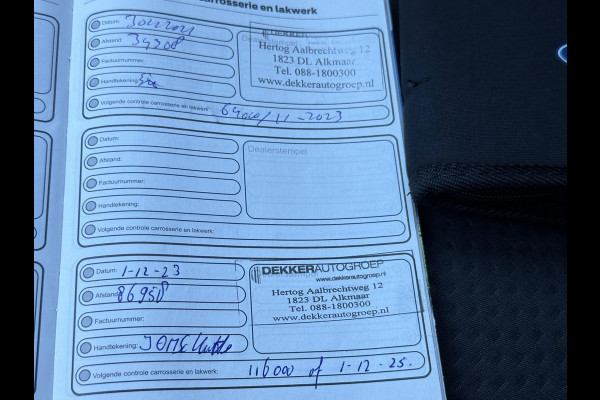 carrosserie en lakwerk
Datum:
Afstand: 34208
Factuurnummer:
Handtekening:
Volgende controle carrosserie en lakwerk: 64000/11-2023
DEKKER
Hertog Aalbrechtweg 12
1823 DL Alkmaar
Tel. 088-1800300
www.dekkerautogroep.nl
Datum:
Afstand:
Factuurnummer:
Handtekening:
Volgende controle carrosserie en lakwerk:
Dealerstempel
Datum: 1-12-23
Afstand: 86958
Factuurnummer:
Handtekening:
Volgende controle carrosserie en lakwerk: 116000 of 1-12-25.
DEKKERAUTOGROEP
www.dekkerautogroep.nl
Hertog Aalbrechtweg 12
1823 DL Alkmaar
Tel. 088-1800300
www.dekkerautogroep.nl